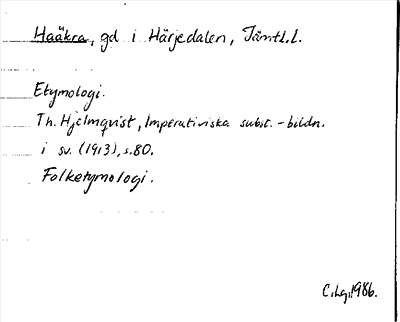 Haåkra, gd i Härjedalen, Jämtl.l.
Etymologi.
Th. Hjelmqvist, Imperativiska subst.-bildn.
i sv. (1913), s.80.
Folketymologi.
C.Lg. 1986.